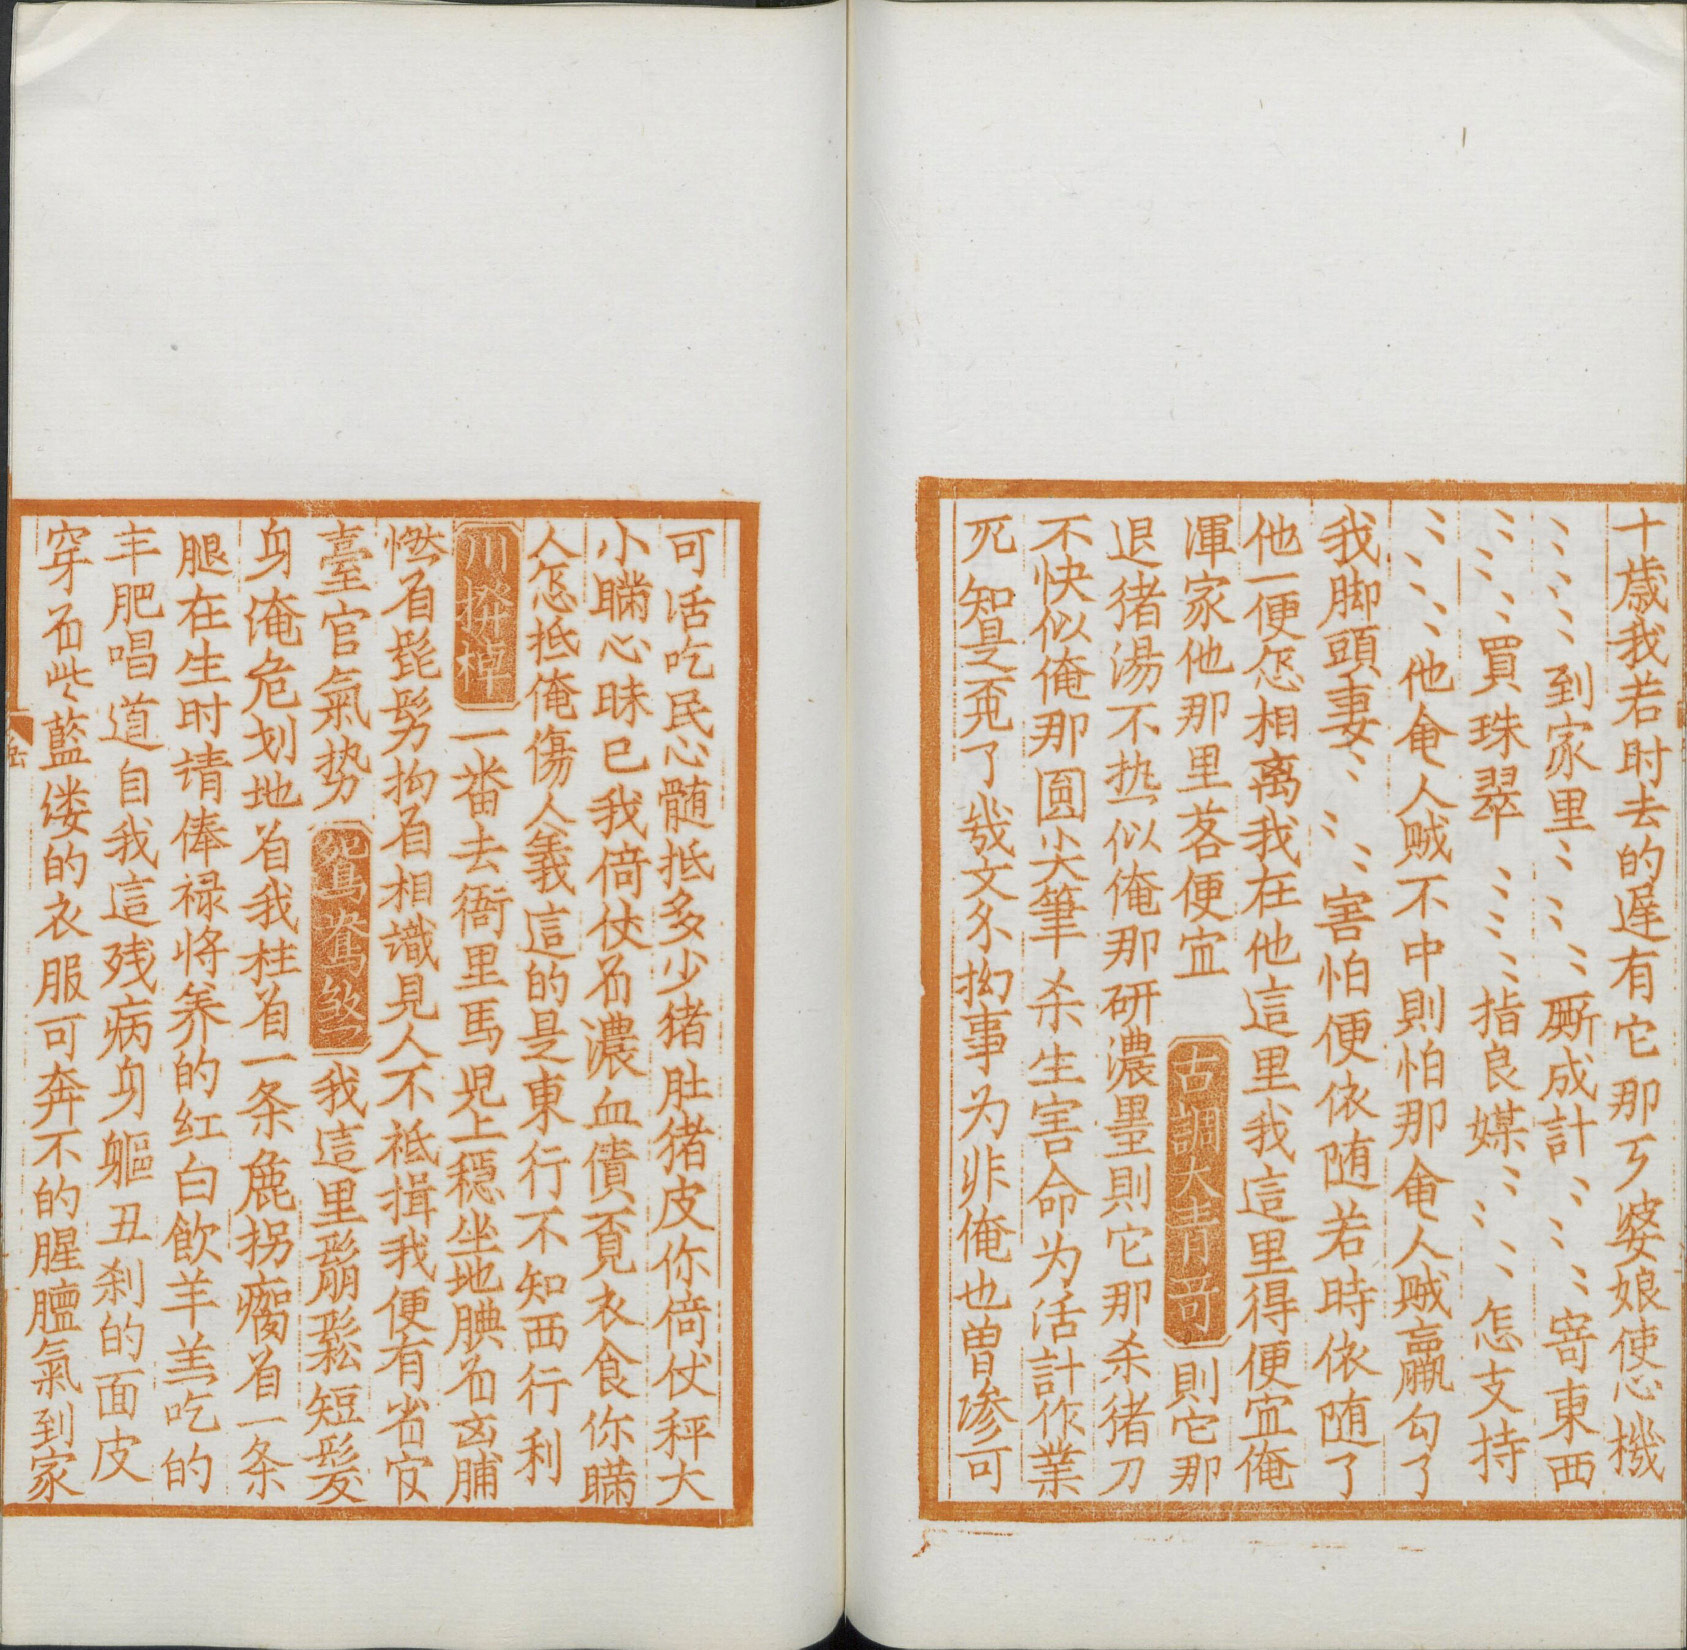 十歲我若时去的遲有它那丂婆娘使心機
〻〻〻〻到家里〻〻〻厮成計〻〻〻寄東西
〻〻〻買珠翠〻〻〻指良媒〻〻〻怎支持
〻〻〻〻他奄人贼不中則怕那奄人贼贏勾了
我脚頭妻〻〻〻害怕便依随若時依随了
他一便怎相离我在他這里我這里得便宜俺
渾家他那里茖便宜 古調大青哥 則它那
退猪湯不热似俺那研濃墨則它那杀猪刀
不快似俺那圓尖筆杀生害命为活計作業
死知是兎了幾文多抝事为非俺也曽渗可
可活吃民心髄抵多少猪肚猪皮你倚仗秤大
小瞞心昧已我倚仗着濃血債覔衣食你瞞
人怎抵俺傷人義這的是東行不知西行利
川撥棹 一番去衙里馬児上穏坐地腆着㐫脯
撚着髭髣抅着相識見人不祗揖我便有省官
臺官氣势 鴛鴦煞 我這里鬅鬆短髮
身淹危划地着我柱着一条麁拐瘸着一条
腿在生时请俸禄将养的红白飲羊羔吃的
丰肥唱道自我這残病身軀丑刹的面皮
穿着些藍缕的衣服可奔不的腥膻氣到家